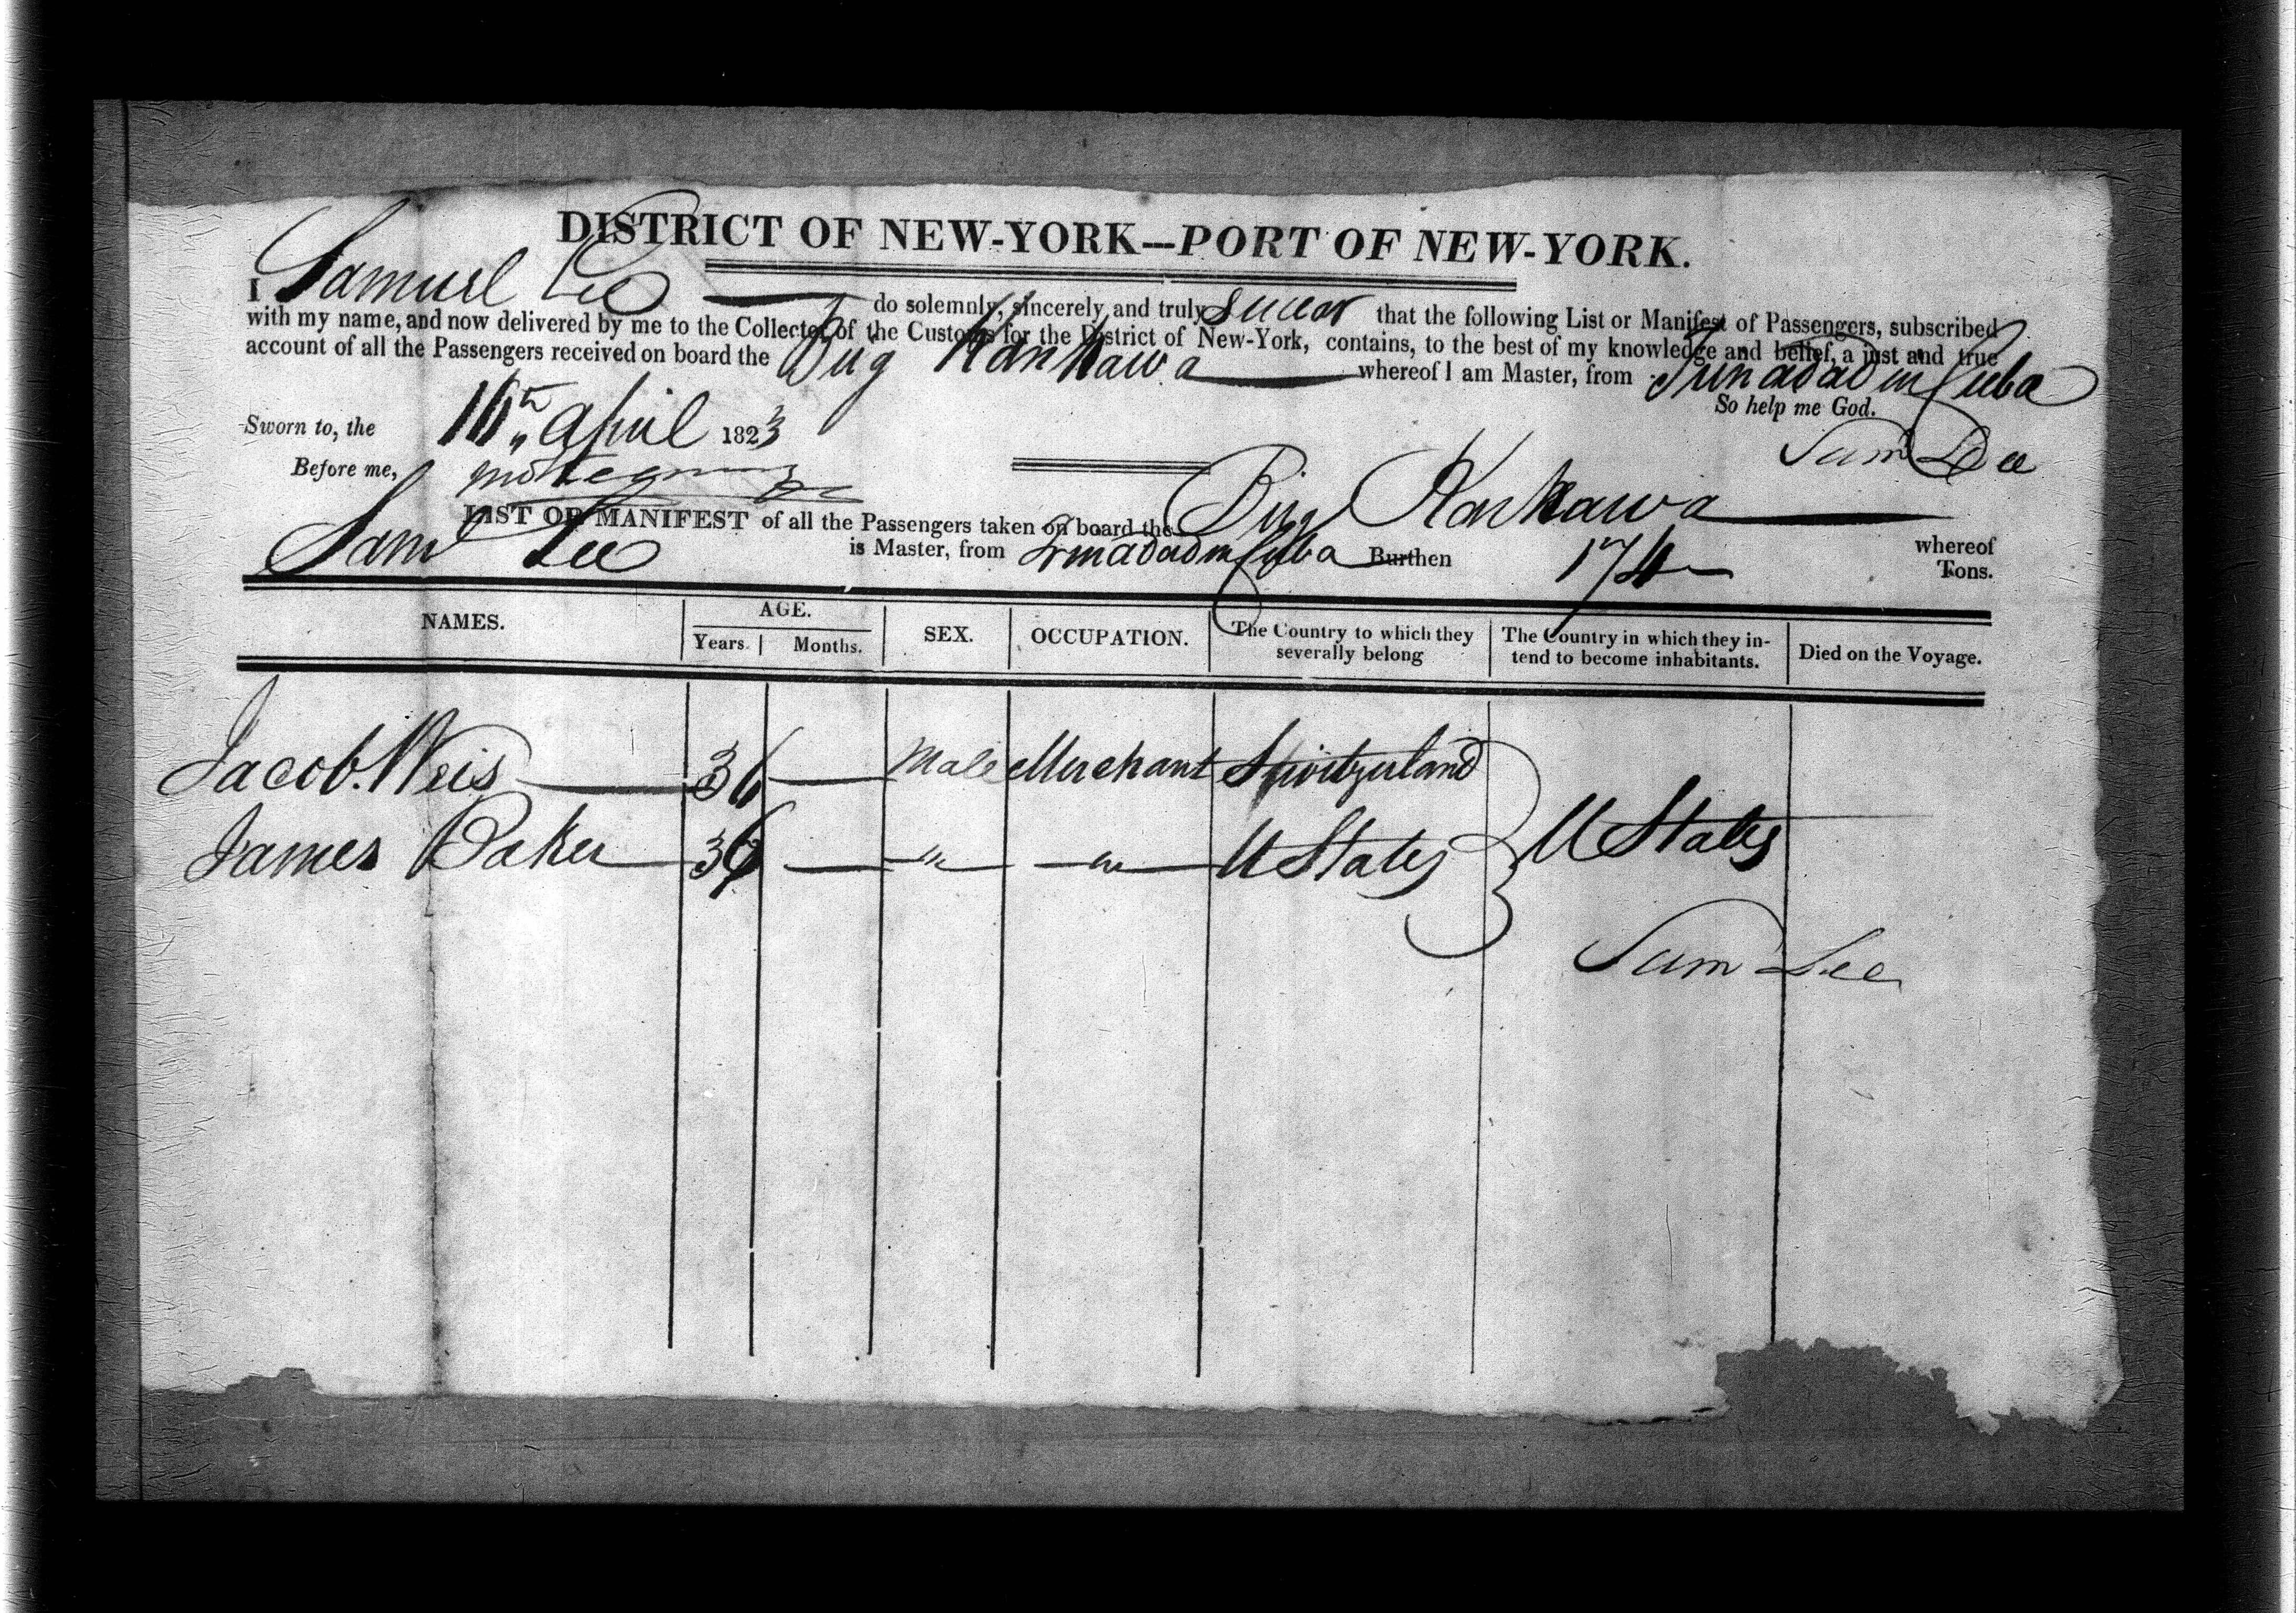 DISTRICT OF NEW-YORK---PORT OF NEW-YORK.
I Samuel Lee do solemnly, sincerely, and truly swear that the following List or Manifest of Passengers, subscribed
with my name, and now delivered by me to the Collector of the Customs for the District of New-York, contains, to the best of my knowledge and belief, a just and true
account of all the Passengers received on board the Brig Kanhawa whereof I am Master, from Trinadad in Cuba
So help me God.
Sworn to, the 16th April 1823
Saml Lee
Before me,
LIST OR MANIFEST of all the Passengers taken on board the Brig Kanhawa whereof
Saml Lee is Master, from Trinadad in Cuba Burthen 174 Tons.
NAMES. AGE. Years. Months. SEX. OCCUPATION. The Country to which they severally belong The Country in which they in-tend to become inhabitants. Died on the Voyage.
Jacob. Weis 36 Male Merchant Switzerland
James Baker 36 " " U States U States
Saml Lee